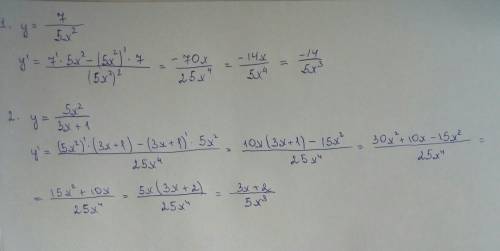 1. y = 7/5x²
y' = (7'·5x² - (5x²)'·7)/(5x²)² = -70x/25x⁴ = -14x/5x⁴ = -14/5x³
2. y = 5x²/(3x+1)
y' = ((5x²)'·(3x+1) - (3x+1)'·5x²)/25x⁴ = (10x(3x+1) - 15x²)/25x⁴ = (30x²+10x-15x²)/25x⁴ =
= (15x²+10x)/25x⁴ = 5x(3x+2)/25x⁴ = (3x+2)/5x³